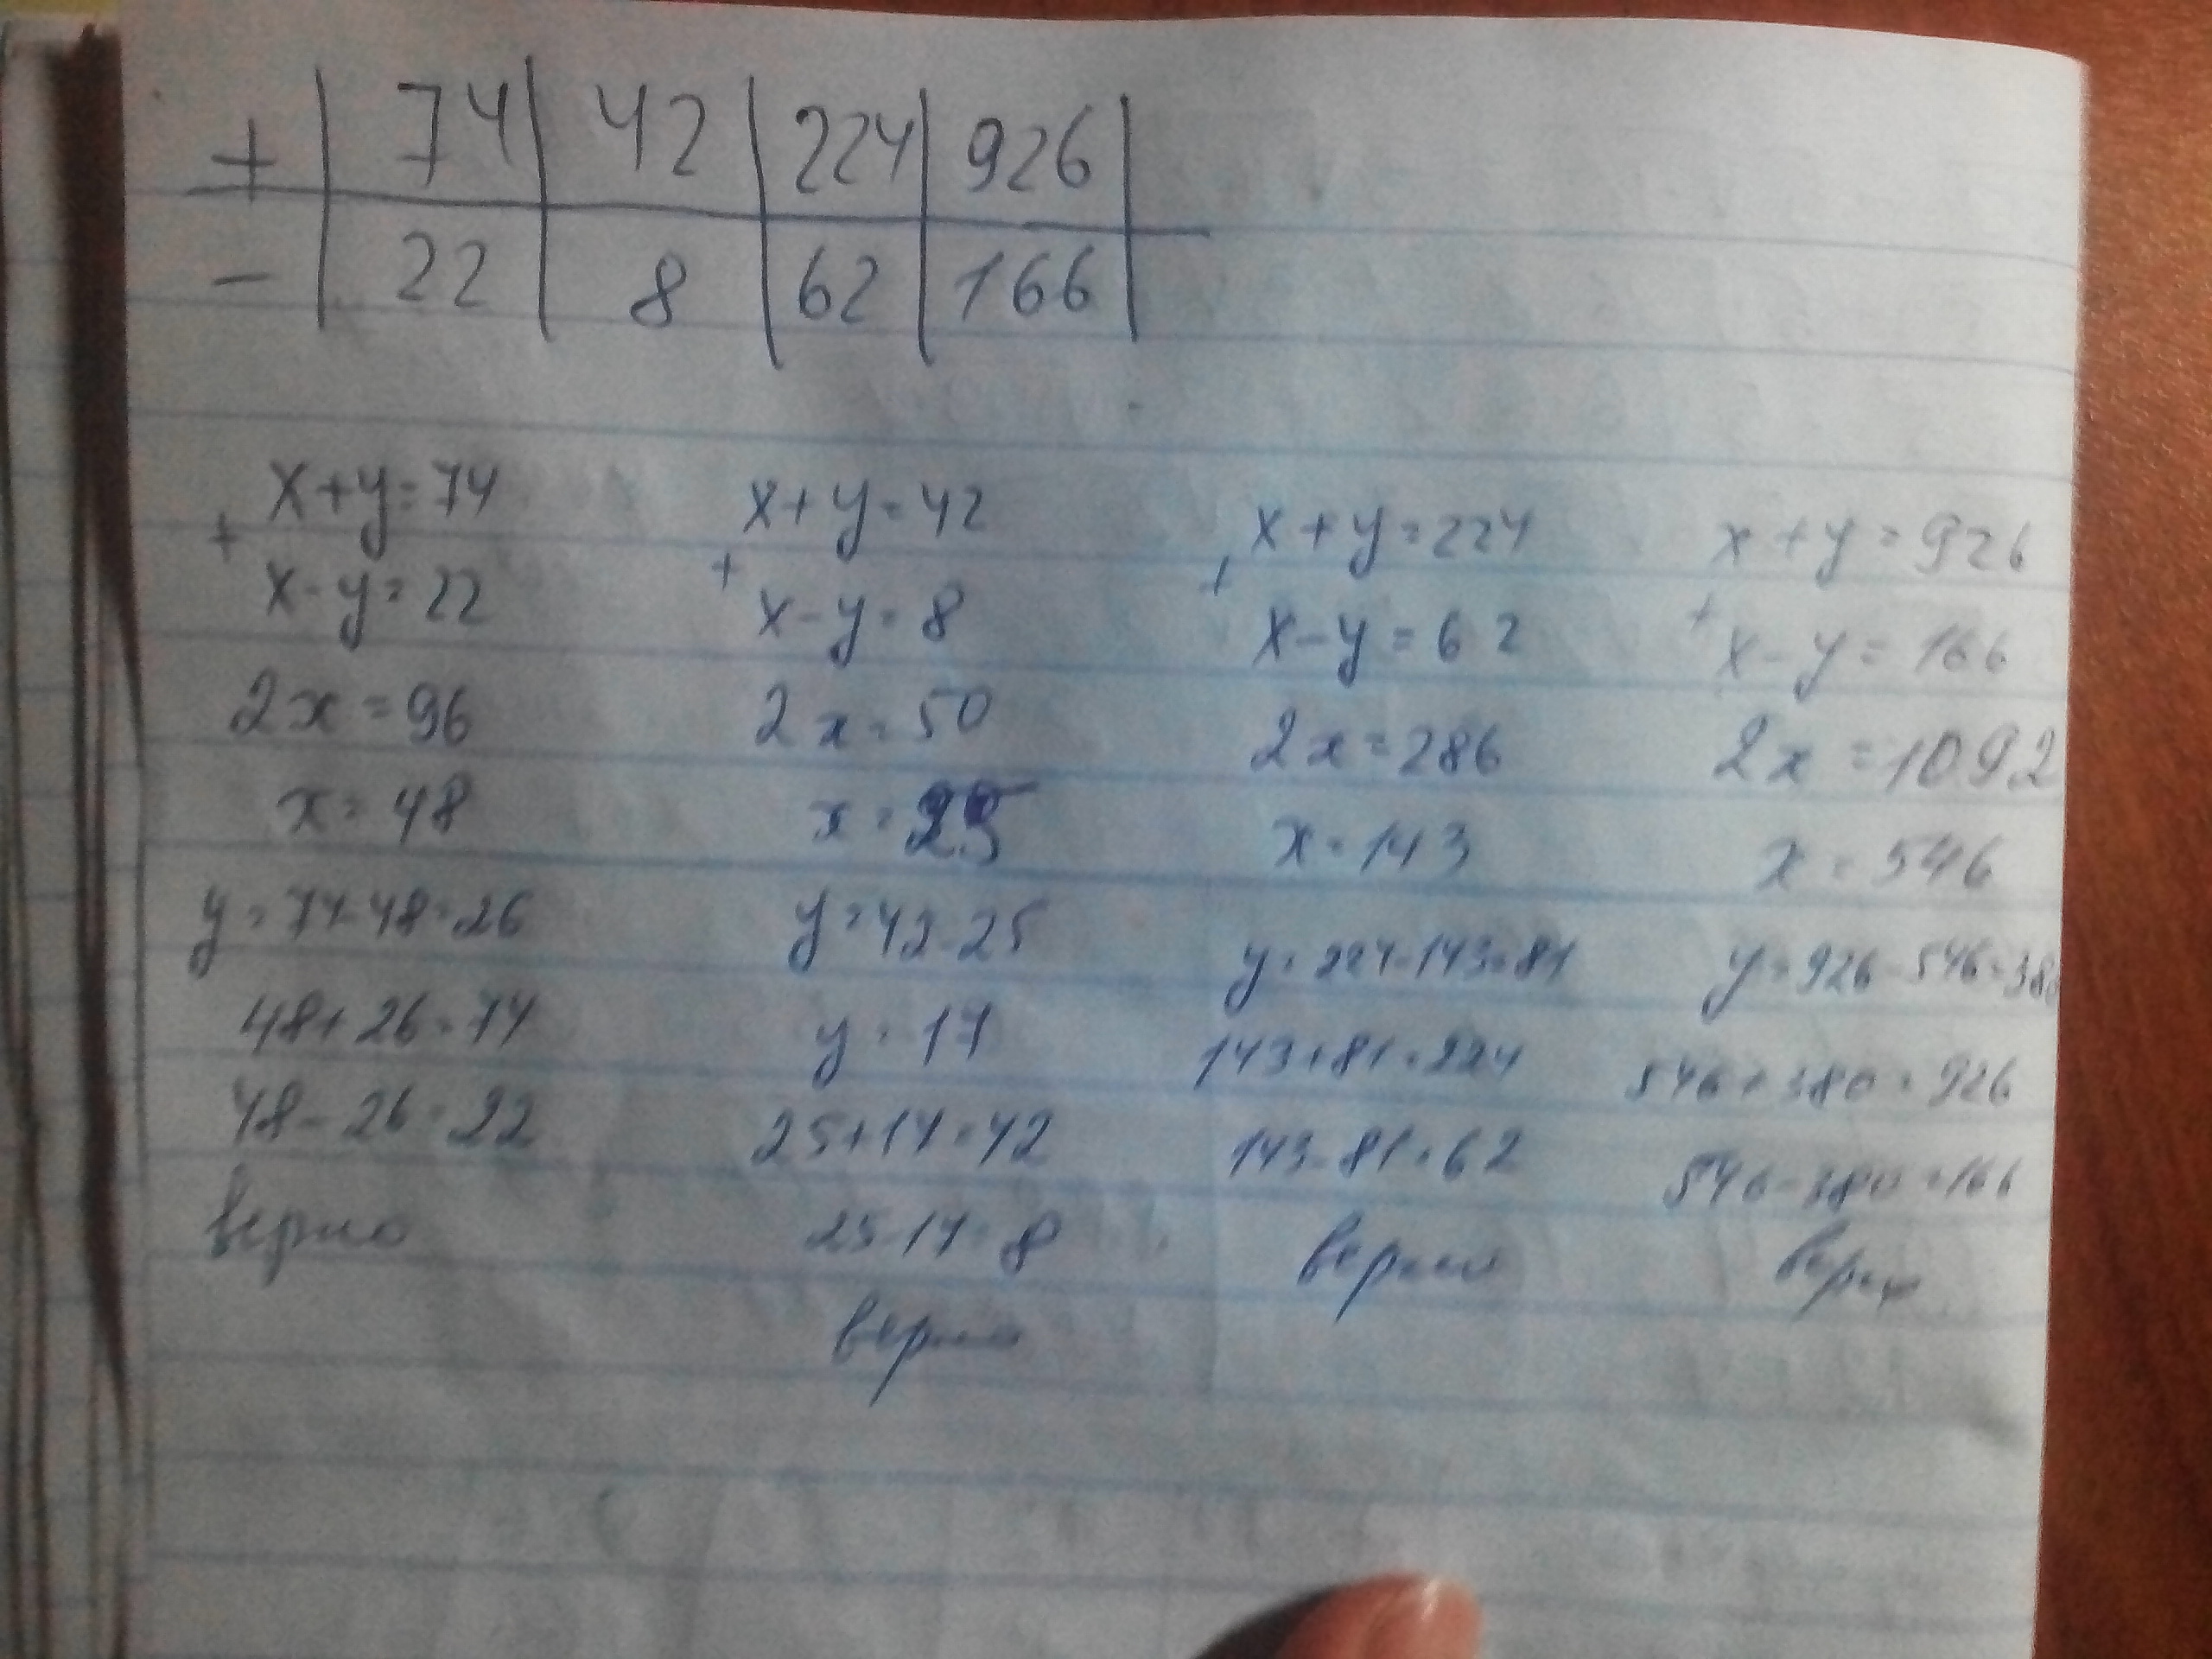 + | 74 | 42 | 224 | 926 |
- | 22 | 8 | 62 | 166 |
x+y=74
+
x-y=22
2x=96
x=48
y=74-48=26
48+26=74
48-26=22
верно
x+y=42
+
x-y=8
2x=50
x=25
y=42-25
y=17
25+17=42
25-17=8
верно
x+y=224
+
x-y=62
2x=286
x=143
y=224-143=81
143+81=224
143-81=62
верно
x+y=926
+
x-y=166
2x=1092
x=546
y=926-546=380
546+380=926
546-380=166
верно